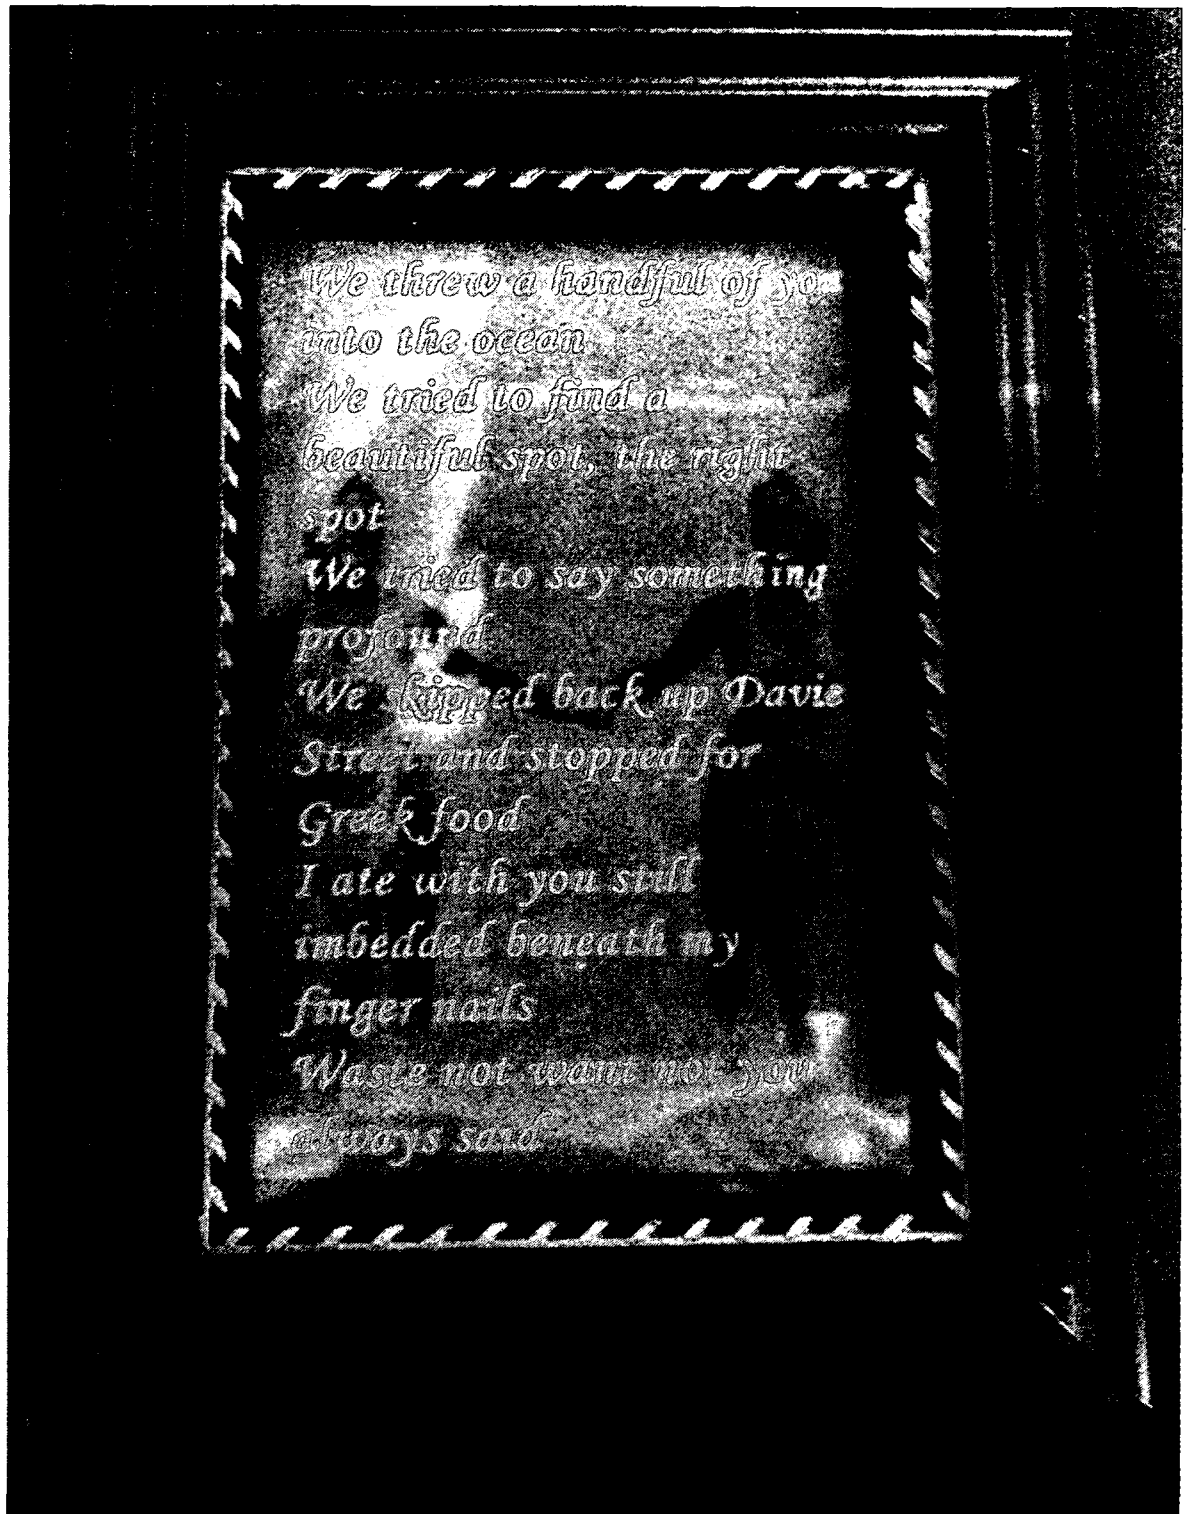 We threw a handful of you
into the ocean
We tried to find a
beautiful spot, the right
spot
We tried to say something
profound
We skipped back up Davie
Street and stopped for
Greek food
I ate with you still
imbedded beneath my
finger nails
Waste not want not you
always said